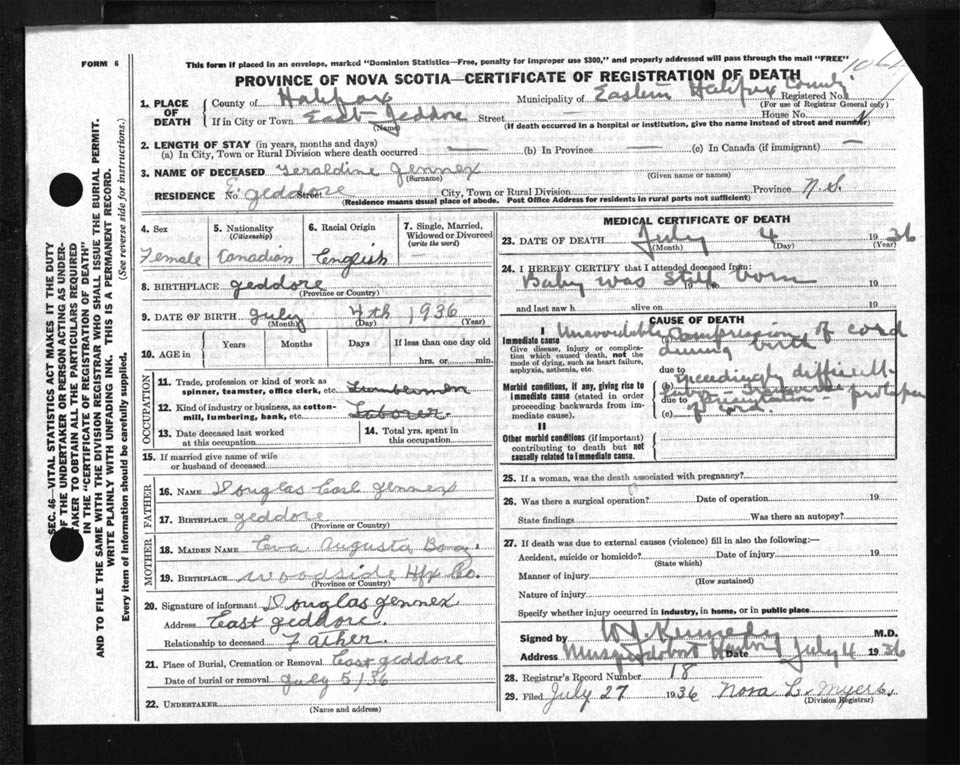 FORM 6
This form if placed in an envelope, marked "Dominion Statistics—Free, penalty for improper use $300," and properly addressed will pass through the mail "FREE"
PROVINCE OF NOVA SCOTIA—CERTIFICATE OF REGISTRATION OF DEATH
1. PLACE OF DEATH
County of Halifax Municipality of Eastern Halifax County Registered No.
(For use of Registrar General only)
If in City or Town East Jeddore Street — House No.
(Name) (If death occurred in a hospital or institution, give the name instead of street and number)
2. LENGTH OF STAY (in years, months and days)
(a) In City, Town or Rural Division where death occurred — (b) In Province — (c) In Canada (if immigrant) —
3. NAME OF DECEASED Geraldine Jennex
(Surname) (Given name or names)
RESIDENCE No. E. Jeddore Street City, Town or Rural Division Province N.S.
(Residence means usual place of abode. Post Office Address for residents in rural parts not sufficient)
4. Sex Female
5. Nationality (Citizenship) Canadian
6. Racial Origin English
7. Single, Married, Widowed or Divorced (write the word) —
8. BIRTHPLACE Jeddore
(Province or Country)
9. DATE OF BIRTH July 4th 1936
(Month) (Day) (Year)
10. AGE in Years Months Days If less than one day old
hrs. or min.
OCCUPATION
11. Trade, profession or kind of work as spinner, teamster, office clerk, etc. Lumberman
12. Kind of industry or business, as cotton-mill, lumbering, bank, etc. Laborer
13. Date deceased last worked at this occupation
14. Total yrs. spent in this occupation
15. If married give name of wife or husband of deceased
FATHER
16. NAME Douglas Earl Jennex
17. BIRTHPLACE Jeddore
(Province or Country)
MOTHER
18. MAIDEN NAME Eva Augusta
19. BIRTHPLACE Woodside Hfx Co.
(Province or Country)
20. Signature of informant Douglas Jennex
Address East Jeddore
Relationship to deceased Father.
21. Place of Burial, Cremation or Removal East Jeddore
Date of burial or removal July 5/36
22. UNDERTAKER
(Name and address)
MEDICAL CERTIFICATE OF DEATH
23. DATE OF DEATH July 4 1936
(Month) (Day) (Year)
24. I HEREBY CERTIFY that I attended deceased from:
Baby was still born 19
and last saw h alive on 19
CAUSE OF DEATH
I
Immediate cause Unavoidable Compression of cord during birth
Give disease, injury or complication which caused death, not the mode of dying, such as heart failure, asphyxia, asthenia, etc.
due to
Morbid conditions, if any, giving rise to immediate cause (stated in order proceeding backwards from immediate cause).
(b) exceedingly difficult
due to Transverse Presentation - prolapse
(c) of cord.
II
Other morbid conditions (if important) contributing to death but not causally related to immediate cause.
25. If a woman, was the death associated with pregnancy?
26. Was there a surgical operation? Date of operation 19
State findings Was there an autopsy?
27. If death was due to external causes (violence) fill in also the following:—
Accident, suicide or homicide? Date of injury 19
(State which)
Manner of injury
(How sustained)
Nature of injury
Specify whether injury occurred in industry, in home, or in public place
Signed by W J Kennedy M.D.
Address Musquodoboit Harbour Date July 4 1936
28. Registrar's Record Number 18
29. Filed July 27 1936 Nora L. Myers
(Division Registrar)
SEC. 46—VITAL STATISTICS ACT MAKES IT THE DUTY
OF THE UNDERTAKER OR PERSON ACTING AS UNDER-
TAKER TO OBTAIN ALL THE PARTICULARS REQUIRED
IN THE "CERTIFICATE OF REGISTRATION OF DEATH"
AND TO FILE THE SAME WITH THE DIVISION REGISTRAR WHO SHALL ISSUE THE BURIAL PERMIT.
WRITE PLAINLY WITH UNFADING INK. THIS IS A PERMANENT RECORD.
Every item of information should be carefully supplied. (See reverse side for instructions.)